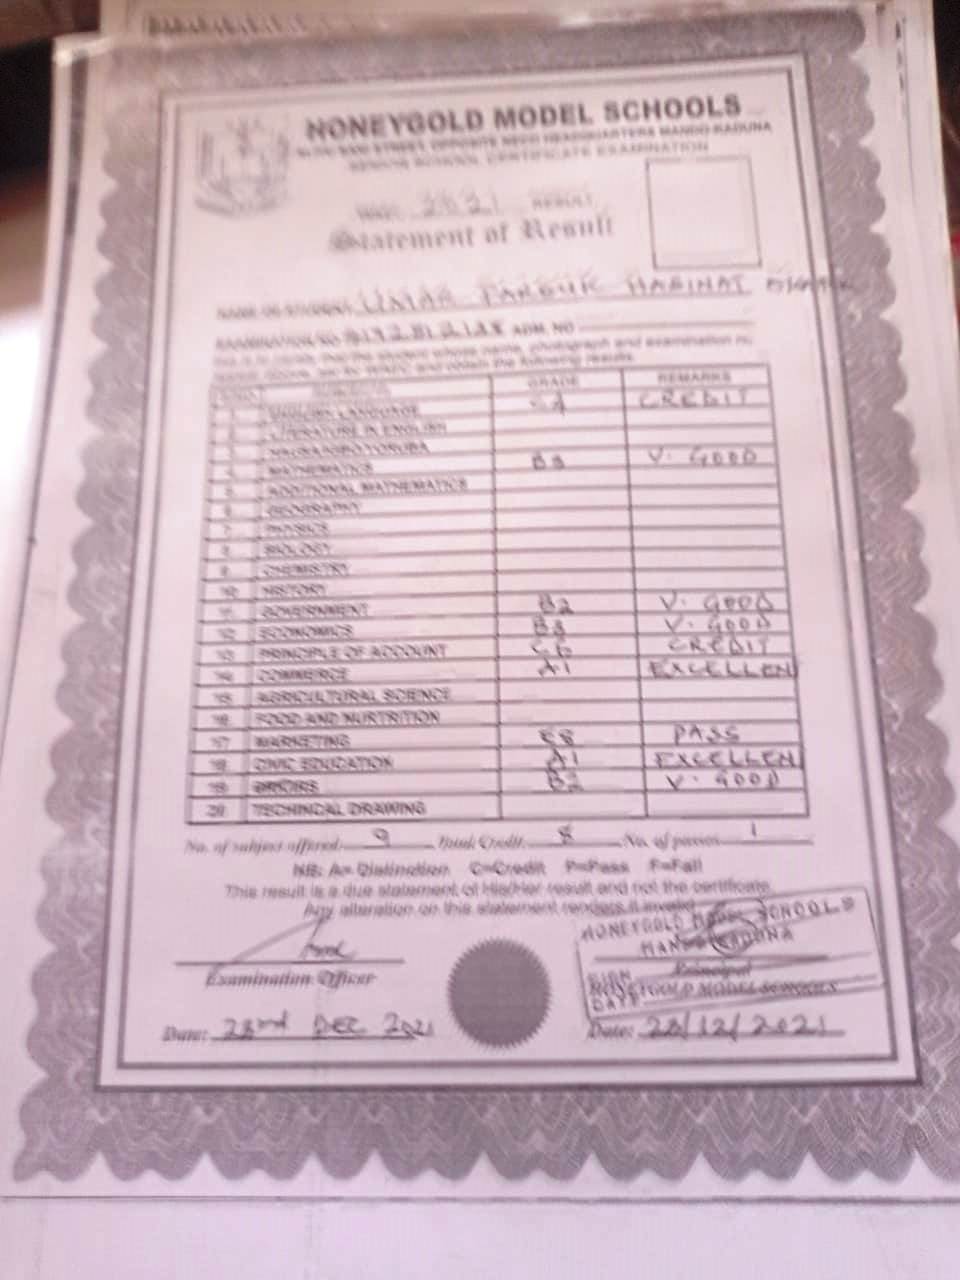 HONEYGOLD MODEL SCHOOLS
STREET, OPPOSITE NECO HEADQUARTERS MANDO-KADUNA
SENIOR SCHOOL CERTIFICATE EXAMINATION
2021 RESULT
Statement of Result
NAME OF STUDENT UMAR FAROUK
EXAMINATION NO ADM. NO
This is to certify that the student whose name, photograph and examination
and obtain the following results
SUBJECTS GRADE REMARKS
1 ENGLISH LANGUAGE C4 CREDIT
2 LITERATURE IN ENGLISH
3 HAUSA/IGBO/YORUBA
4 MATHEMATICS B3 V. GOOD
5 ADDITIONAL MATHEMATICS
6 GEOGRAPHY
7 PHYSICS
8 BIOLOGY
9 CHEMISTRY
10 HISTORY
11 GOVERNMENT B2 V. GOOD
12 ECONOMICS B3 V. GOOD
13 PRINCIPLE OF ACCOUNT C6 CREDIT
14 COMMERCE A1 EXCELLEN
15 AGRICULTURAL SCIENCE
16 FOOD AND NURTRITION
17 MARKETING E8 PASS
18 CIVIC EDUCATION A1 EXCELLEN
19 B2 V. GOOD
20 TECHINCAL DRAWING
No. of subject offered: 9 Total Credit: 8 No. of passes 1
NB: A= Distinction C=Credit P=Pass F=Fail
This result is a due statement of His/Her result and not the certificate.
Any alteration on this statement renders it invalid
HONEYGOLD MODEL SCHOOLS
MANDO KADUNA
SIGN
DATE
Examination Officer
Principal
HONEYGOLD MODEL SCHOOLS
Date: 23rd DEC 2021
Date: 23/12/2021